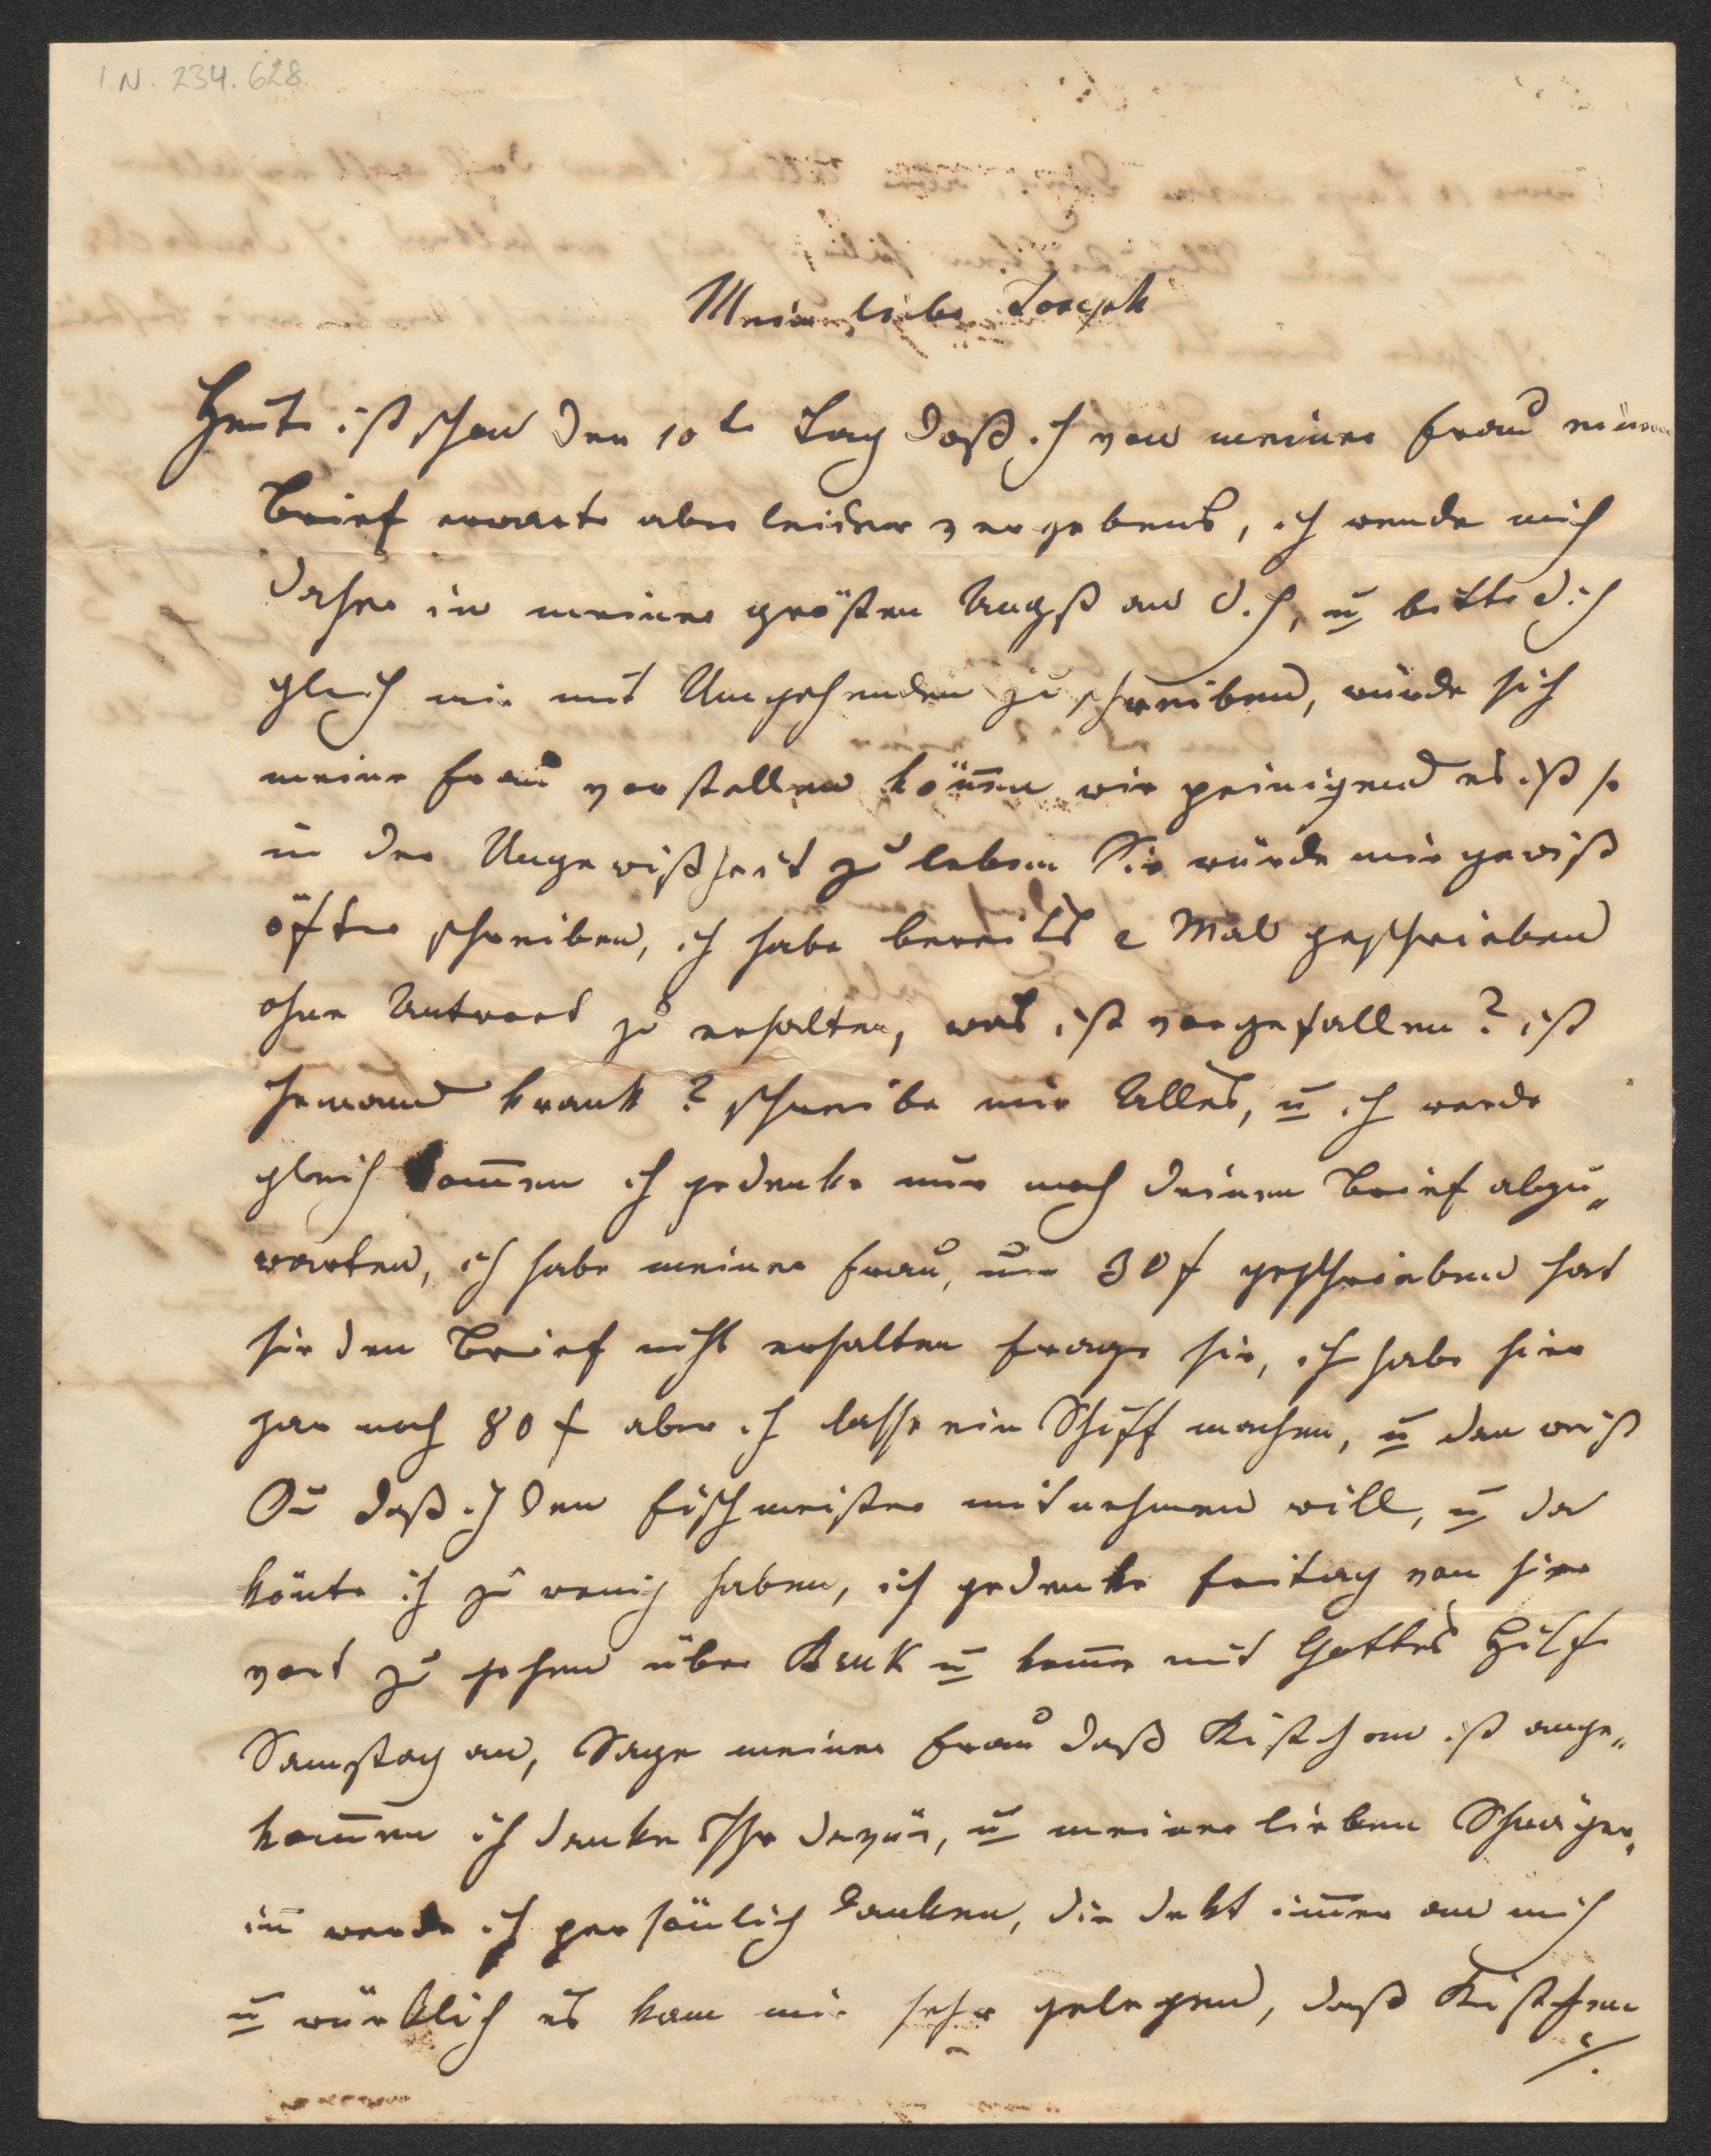 I.N. 234.628
Mein lieber Joseph
Heute ist schon der 10te Tag daß ich von meiner Frau einen
Brief erwarte aber leider vergebens, ich wende mich
daher in meiner größten Angst an dich, u bitte dich
gleich mir mit Umgehenden zu schreiben, würde sich
meine Frau vorstellen köñen wie peinigend es ist so
in der Ungewißheit zu leben Sie würde mir gewiß
öfter schreiben, ich habe bereits 2 Mal geschrieben
ohne Antwort zu erhalten, was ist vorgefallen? ist
Jemand krank? schreibe mir Alles, u ich werde
gleich kom̃en ich gedenke nur noch deinen Brief abzu„
warten, ich habe meiner Frau, um 30 f geschrieben hat
sie den Brief nicht erhalten frage sie, ich habe hier
zwar noch 80 f aber ich lasse ein Schiff machen, u dan weist
Du daß ich den Fischmeister mitnehmen will, u da
könte ich zu wenig haben, ich gedenke Freitag von hier
vort zu gehen über Bruk u kom̃e mit Gottes Hilfe
Samstag an, Sage meiner Frau daß Kistchen ist ange„
kom̃en ich danke Ihr davür, u meiner lieben Schwäger„
iñ werde ich persönlich danken, die dekt im̃er an mich
u würklich es kam mir sehr gelegen, daß Kistchen
./.